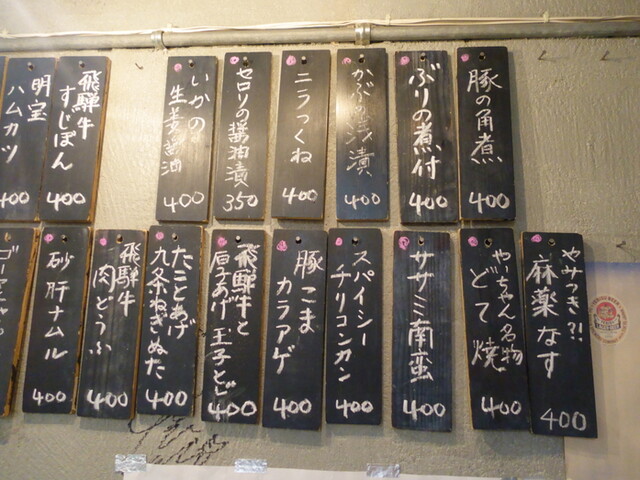 豚の角煮
400
ぶりの煮付
400
かぶの浅漬
400
ニラつくね
400
セロリの醤油漬
350
いかの
生姜醤油
400
飛騨牛
すじぽん
400
明宝
ハムカツ
400
やみつき?!
麻薬なす
400
やいちゃん名物
どて焼
400
ササミ南蛮
400
スパイシー
チリコンカン
400
豚こま
カラアゲ
400
飛騨牛と
厚あげ玉子とじ
400
たことあげ
九条ねぎぬた
400
飛騨牛
肉どうふ
400
砂肝ナムル
400